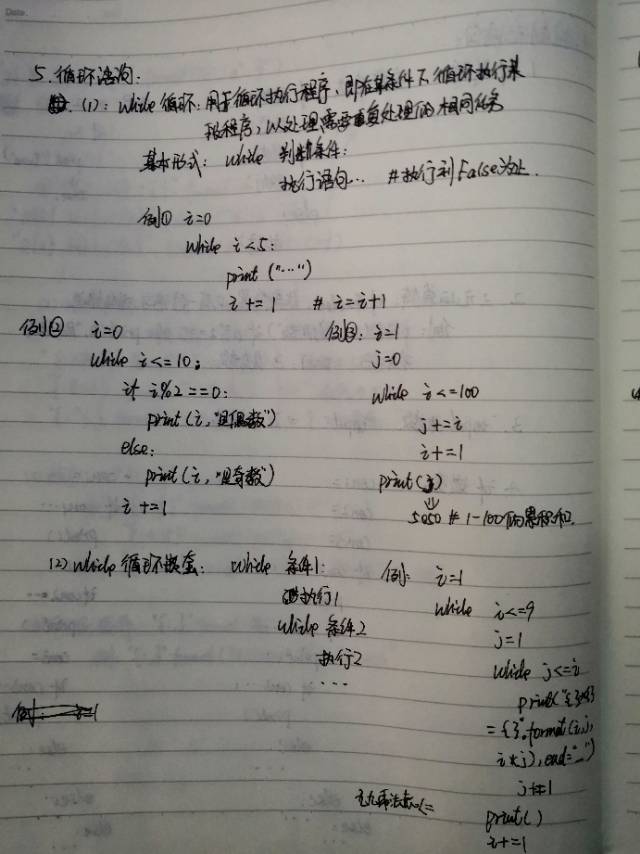 Date.
5.循环语句:
(1): while循环:用于循环执行程序,即在某条件下,循环执行某
段程序,以处理需要重复处理的相同任务
基本形式: while 判断条件:
执行语句... #执行到False为止.
例① i=0
while i<5:
print ("...")
i += 1 # i=i+1
例② i=0
while i<=10:
if i%2==0:
print(i,"是偶数")
else:
print(i,"是奇数")
i +=1
例③: i=1
j=0
while i<=100
j+=i
i+=1
print(j)
5050 # 1-100的累积和.
(2) while循环嵌套: while 条件1:
执行1
while 条件2
执行2
...
例: i=1
while i<=9
j=1
while j<=i
print("{}*{}
={}".format(i,j,
i*j),end="_")
j+=1
print()
i+=1
九九乘法表
例: i=1